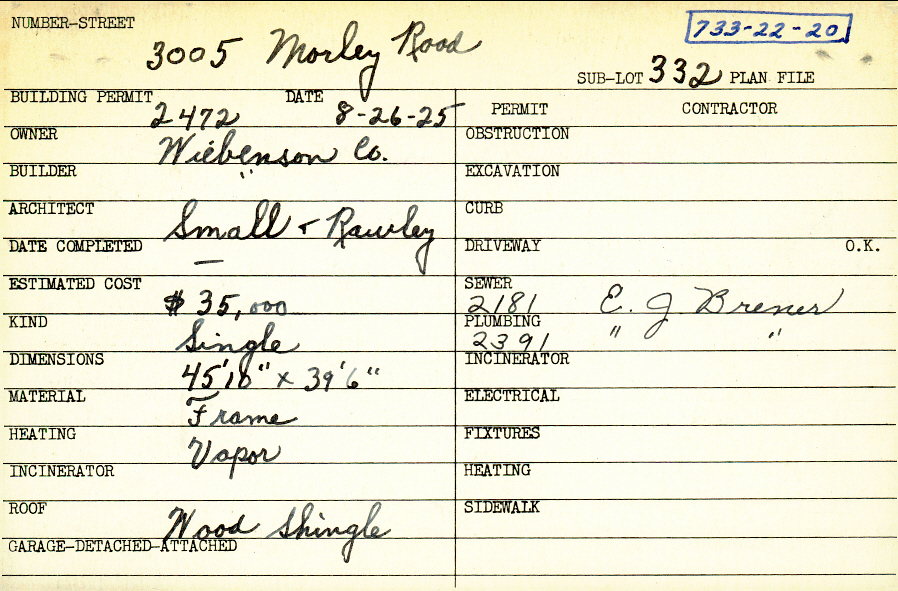 NUMBER-STREET
3005 Morley Road
733-22-20
SUB-LOT 332 PLAN FILE
BUILDING PERMIT 2472 DATE 8-26-25
PERMIT CONTRACTOR
OWNER Wiebenson Co.
OBSTRUCTION
BUILDER "
EXCAVATION
ARCHITECT Small & Rowley
CURB
DATE COMPLETED —
DRIVEWAY O.K.
ESTIMATED COST $35,000
SEWER 2181 E. J. Brener
KIND Single
PLUMBING 2391 " "
DIMENSIONS 45'10" x 39'6"
INCINERATOR
MATERIAL Frame
ELECTRICAL
HEATING Vapor
FIXTURES
INCINERATOR
HEATING
ROOF Wood Shingle
SIDEWALK
GARAGE-DETACHED-ATTACHED